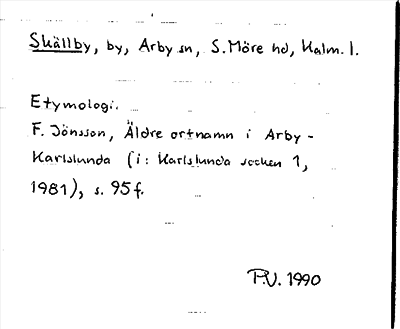 Skällby, by, Arby sn, S. Möre hd, Kalm. l.
Etymologi.
F. Jönsson, Äldre ortnamn i Arby -
Karlslunda (i: Karlslunda socken 1,
1981), s. 95 f.
P.V. 1990